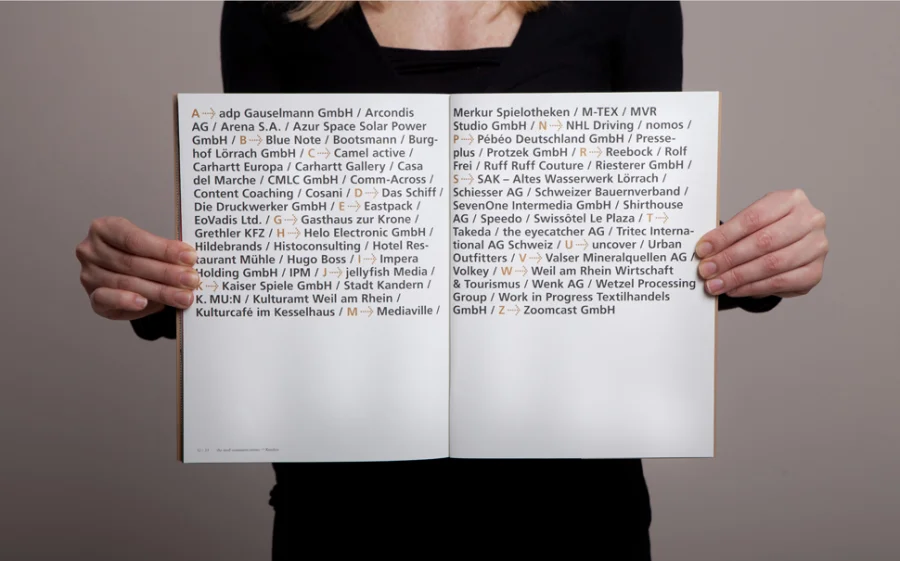 A → adp Gauselmann GmbH / Arcondis
AG / Arena S.A. / Azur Space Solar Power
GmbH / B → Blue Note / Bootsmann / Burg-
hof Lörrach GmbH / C → Camel active /
Carhartt Europa / Carhartt Gallery / Casa
del Marche / CMLC GmbH / Comm-Across /
Content Coaching / Cosani / D → Das Schiff /
Die Druckwerker GmbH / E → Eastpack /
EoVadis Ltd. / G → Gasthaus zur Krone /
Grethler KFZ / H → Helo Electronic GmbH /
Hildebrands / Histoconsulting / Hotel Res-
taurant Mühle / Hugo Boss / I → Impera
Holding GmbH / IPM / J → jellyfish Media /
K → Kaiser Spiele GmbH / Stadt Kandern /
K. MU:N / Kulturamt Weil am Rhein /
Kulturcafé im Kesselhaus / M → Mediaville /
Merkur Spielotheken / M-TEX / MVR
Studio GmbH / N → NHL Driving / nomos /
P → Pébéo Deutschland GmbH / Presse-
plus / Protzek GmbH / R → Reebock / Rolf
Frei / Ruff Ruff Couture / Riesterer GmbH /
S → SAK – Altes Wasserwerk Lörrach /
Schiesser AG / Schweizer Bauernverband /
SevenOne Intermedia GmbH / Shirthouse
AG / Speedo / Swissôtel Le Plaza / T →
Takeda / the eyecatcher AG / Tritec Interna-
tional AG Schweiz / U → uncover / Urban
Outfitters / V → Valser Mineralquellen AG /
Volkey / W → Weil am Rhein Wirtschaft
& Tourismus / Wenk AG / Wetzel Processing
Group / Work in Progress Textilhandels
GmbH / Z → Zoomcast GmbH